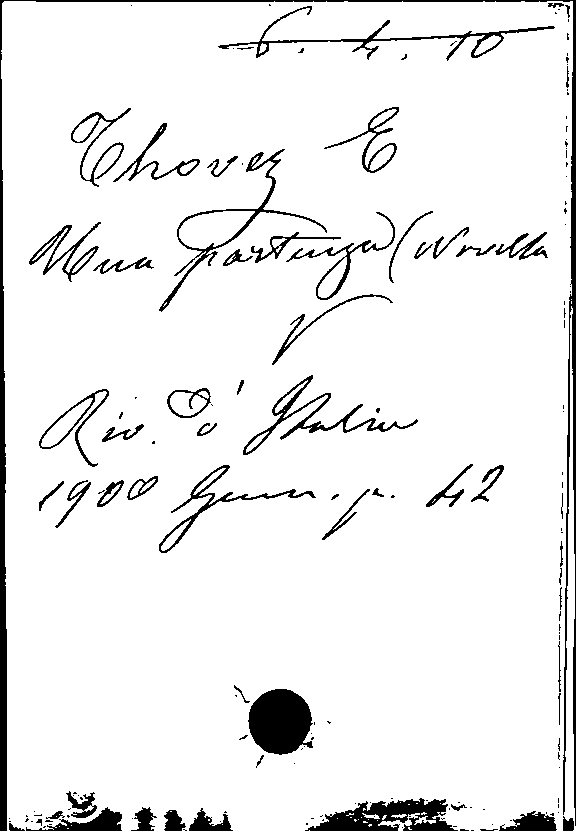 6. 4. 10
Thovez E
Una partenza (Novella
V
Riv. d' Italia
1900 Genn. p. 42